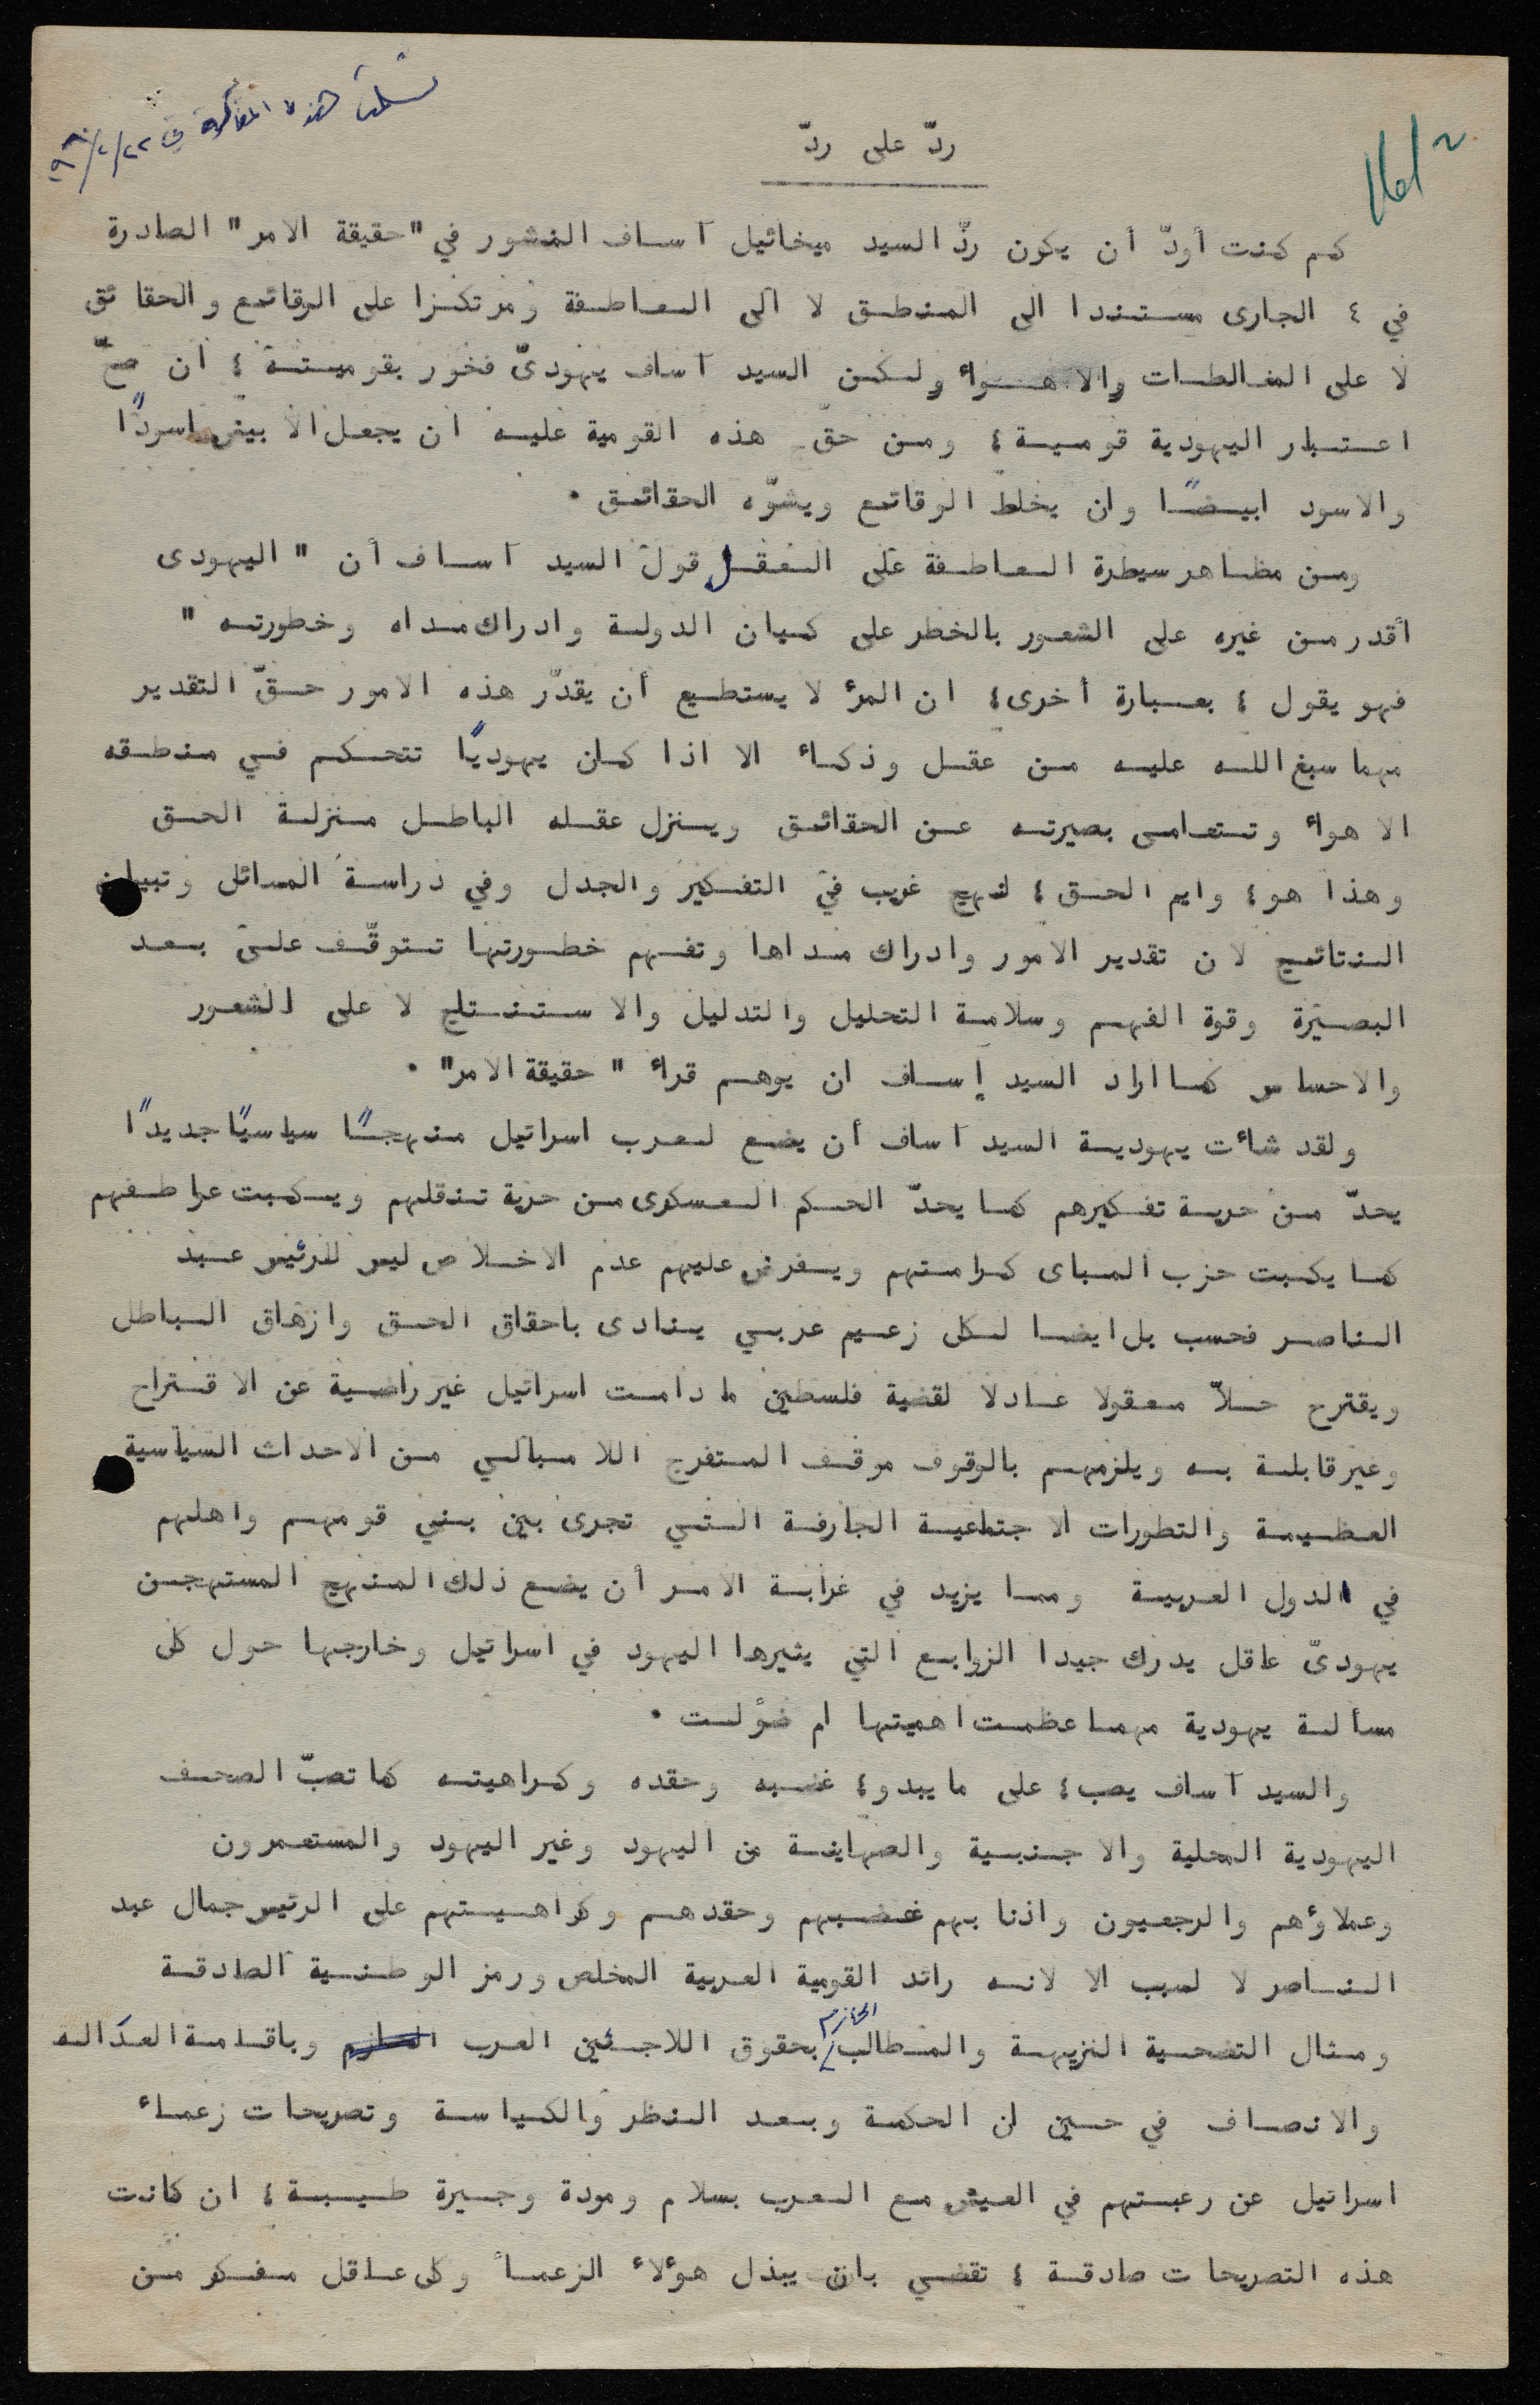 ردّ على ردّ
كم كنت أودّ أن يكون ردّ السيد ميخائيل آساف المنشور في "حقيقة الامر" الصادرة
في ٤ الجارى مستندا الى المنطق لا الى العاطفة ومرتكزا على الوقائع والحقائق
لا على المغالطات والاهواء ولكن السيد آساف يهوديّ فخور بقوميته ، ان صحّ
اعتبار اليهودية قومية ، ومن حقّ هذه القومية عليه ان يجعل الابيض اسودًا
والاسود ابيضًا وان يخلط الوقائع ويشوّه الحقائق .
ومن مظاهر سيطرة العاطفة على العقل قول السيد آساف أن " اليهودى
أقدر من غيره على الشعور بالخطر على كيان الدولة وادراك مداه وخطورته "
فهو يقول ، بعبارة أخرى ، ان المرء لا يستطيع أن يقدّر هذه الامور حقّ التقدير
مهما سبغ الله عليه من عقل وذكاء الا اذا كان يهوديًا تتحكم في منطقه
الاهواء وتتعامى بصيرته عن الحقائق وينزل عقله الباطل منزلة الحق
وهذا هو ، وايم الحق ، لنهج غريب في التفكير والجدل وفي دراسة المسائل وتبيان
النتائج لان تقدير الامور وادراك مداها وتفهم خطورتها تتوقّف على بعد
البصيرة وقوة الفهم وسلامة التحليل والتدليل والاستنتاج لا على الشعور
والاحساس كما اراد السيد إساف ان يوهم قراء " حقيقة الامر" .
ولقد شاءت يهودية السيد آساف أن يضع لعرب اسرائيل منهجًا سياسيًا جديدًا
يحدّ من حرية تفكيرهم كما يحدّ الحكم العسكرى من حرية تنقلهم ويكبت عواطفهم
كما يكبت حزب المباى كرامتهم ويفرض عليهم عدم الاخلاص ليس للرئيس عبد
الناصر فحسب بل ايضا لكل زعيم عربي ينادى باحقاق الحق وازهاق الباطل
ويقترح حلاّ معقولا عادلا لقضية فلسطين ما دامت اسرائيل غير راضية عن الاقتراح
وغير قابلة به ويلزمهم بالوقوف موقف المتفرج اللا مبالي من الاحداث السياسية
العظيمة والتطورات الاجتماعية الجارفة التي تجرى بين بني قومهم واهلهم
في الدول العربية ومما يزيد في غرابة الامر أن يضع ذلك المنهج المستهجن
يهوديّ عاقل يدرك جيدا الزوابع التي يثيرها اليهود في اسرائيل وخارجها حول كل
مسألة يهودية مهما عظمت اهميتها ام ضؤلت .
والسيد آساف يصب ، على ما يبدو ، غضبه وحقده وكراهيته كما تصبّ الصحف
اليهودية المحلية والاجنبية والصهاينة من اليهود وغير اليهود والمستعمرون
وعملاؤهم والرجعيون واذنابهم غضبهم وحقدهم وكراهيتهم على الرئيس جمال عبد
الناصر لا لسبب الا لانه رائد القومية العربية المخلص ورمز الوطنية الصادقة
ومثال التضحية النزيهة والمطالب الحازم بحقوق اللاجئين العرب وباقامة العداله
والانصاف في حين ان الحكمة وبعد النظر والكياسة وتصريحات زعماء
اسرائيل عن رغبتهم في العيش مع العرب بسلام ومودة وجيرة طيبة ، ان كانت
هذه التصريحات صادقة ، تقضي بان يبذل هؤلاء الزعماء وكل عاقل مفكر من